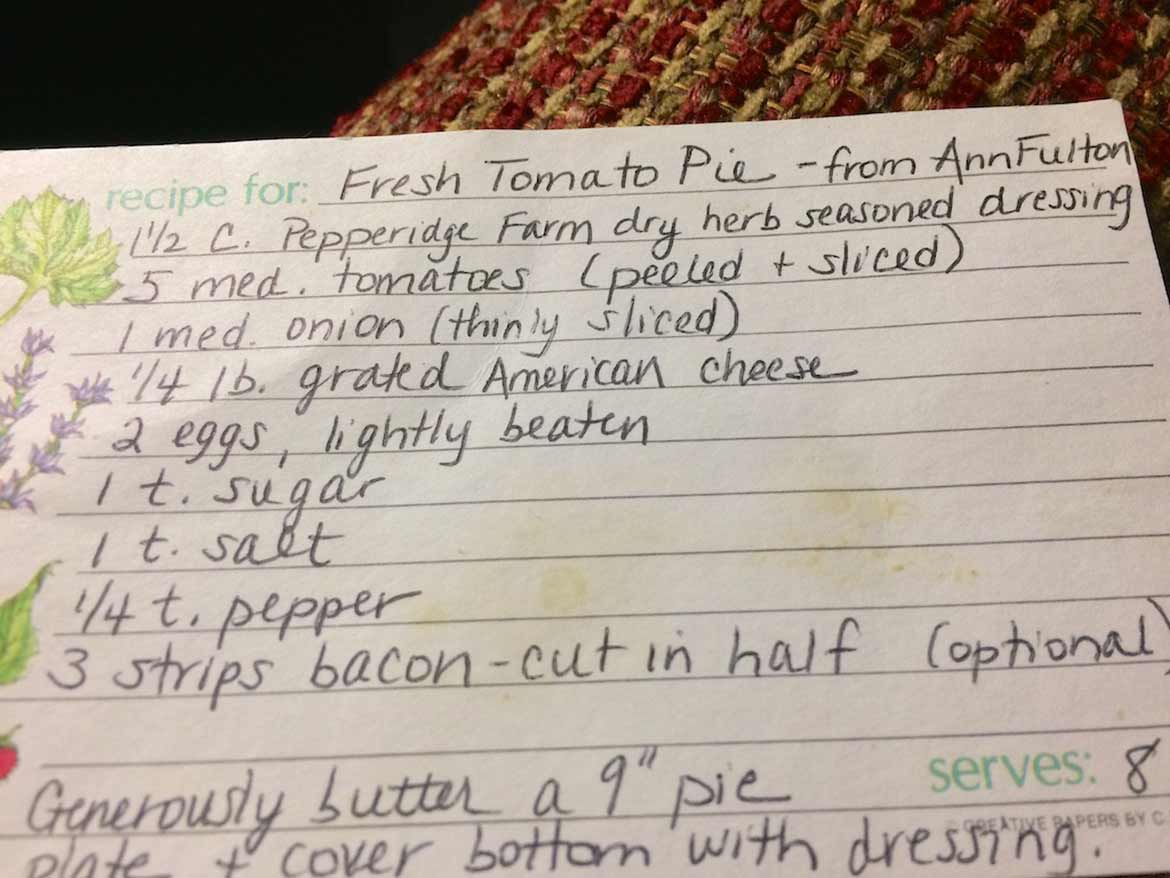 recipe for: Fresh Tomato Pie - from Ann Fulton
1 1/2 C. Pepperidge Farm dry herb seasoned dressing
5 med. tomatoes (peeled + sliced)
1 med. onion (thinly sliced)
1/4 lb. grated American cheese
2 eggs, lightly beaten
1 t. sugar
1 t. salt
1/4 t. pepper
3 strips bacon - cut in half (optional)
serves: 8
Generously butter a 9" pie
© CREATIVE PAPERS BY C
plate + cover bottom with dressing.